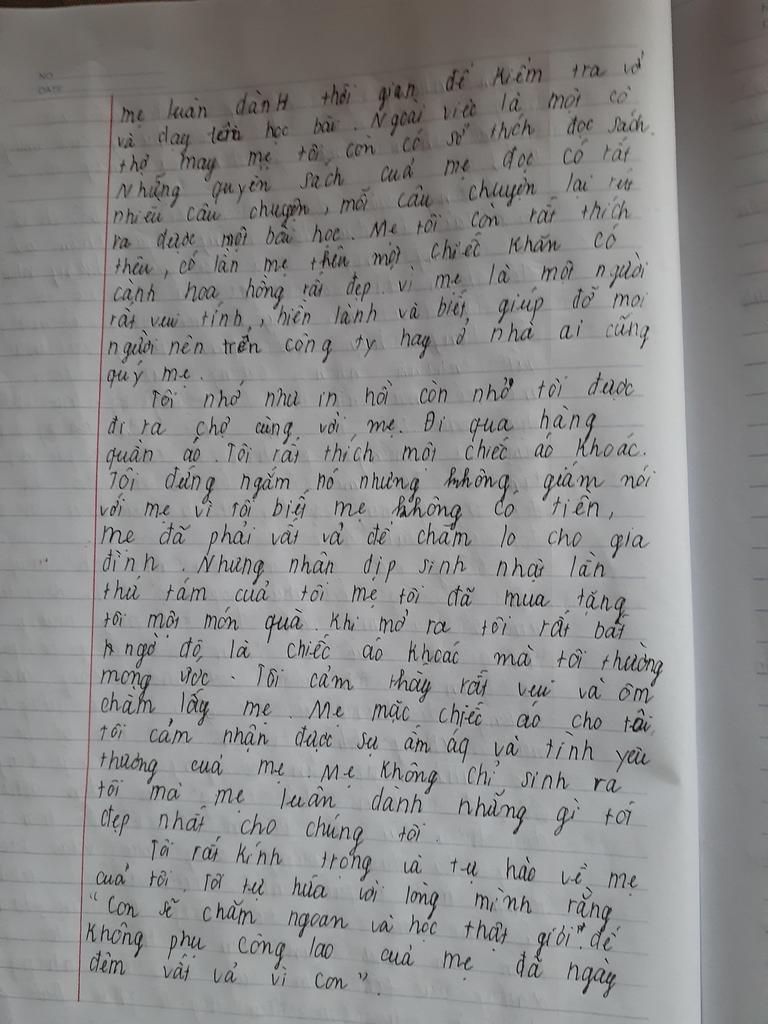 NO
DATE
mẹ luàn dành thời gian để kiểm tra vở
và dạy tôi học bài. Ngoài việc là một cô
thợ may mẹ tôi còn có sở thích đọc sách.
Những quyên sách cuả mẹ đọc có rất
nhiều câu chuyện, mỗi câu chuyện lại rút
ra được một bài học. Mẹ tôi còn rất thích
thêu, có lần mẹ thêu một chiếc khăn có
cành hoa hồng rất đẹp. vì mẹ là một người
rất vui tính, hiền lành và biết giúp đỡ mọi
người nên trên công ty hay ở nhà ai cũng
quý mẹ.
Tôi nhớ như in hồi còn nhỏ tôi được
đi ra chợ cùng với mẹ. Đi qua hàng
quần áo. Tôi rất thích một chiếc áo khoác.
Tôi đứng ngắm nó nhưng không giám nói
với mẹ vì tôi biết mẹ không có tiền,
mẹ đã phải vất vả để chăm lo cho gia
đình. Nhưng nhân dịp sinh nhật lần
thứ tám cuả tôi mẹ tôi đã mua tặng
tôi một món quà. Khi mở ra tôi rất bất
ngờ đó là chiếc áo khoác mà tôi thường
mong ước. Tôi cảm thấy rất vui và ôm
chầm lấy mẹ. Mẹ mặc chiếc áo cho tôi,
tôi cảm nhận được sự ấm áp và tình yêu
thương cuả mẹ. Mẹ không chỉ sinh ra
tôi mà mẹ luân dành những gì tốt
đẹp nhất cho chúng tôi.
Tôi rất kính trọng và tự hào về mẹ
cuả tôi. Tôi tự hứa với lòng mình rằng
"Con sẽ chăm ngoan và học thật giỏi" để
không phụ công lao cuả mẹ đã ngày
đêm vất vả vì con".